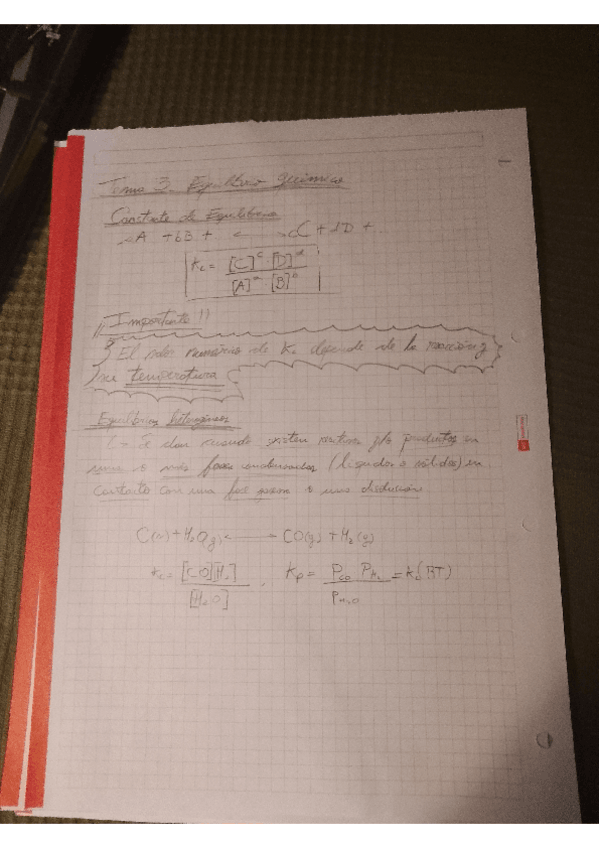 Tema 3. Equilibrio químico
Constante de Equilibrio
aA + bB + ⟷ cC + dD +
Kc = [C]^c · [D]^d / [A]^a · [B]^b
¡¡Importante!!
El valor numérico de Kc depende de la reacción y
su temperatura
Equilibrios heterogéneos
Se dan cuando existen reactivos y/o productos en
una o más fases condensadas (líquidos o sólidos) en
contacto con una fase gaseosa o una disolución
C(s) + H₂O(g) ⟷ CO(g) + H₂(g)
Kc = [CO][H₂] / [H₂O] , Kp = P_CO P_H₂ / P_H₂O = Kc(RT)